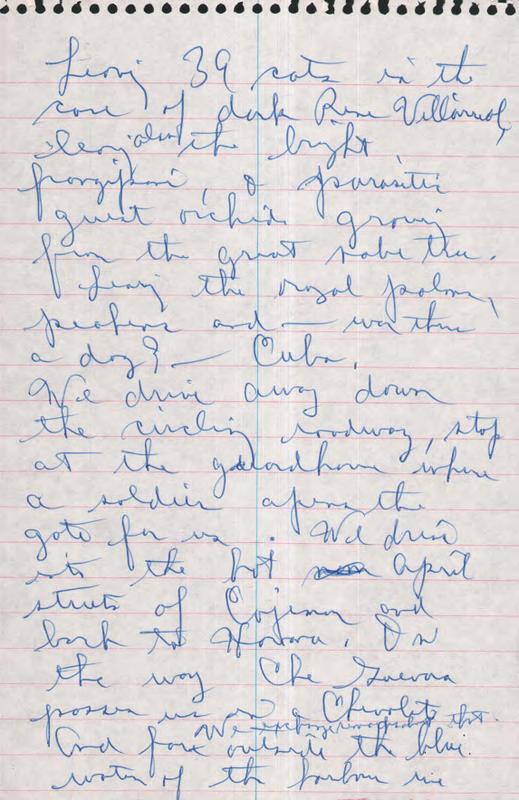 Leaving 39 cats in the
care of dark Rene Villarreal,
leaving also the bright
frangipani, & parasitic
guest orchids growing
from the great ceiba tree.
Leaving the royal palms,
peahens and — was there
a dog? — Cuba.
We drive away down
the circling roadway, stop
at the guardhouse where
a soldier opens the
gate for us. We drive
into the hot April
streets of Cojimar and
back to Havana. On
the way Che Guevara
passes us in a Chevrolet.
We exchange that.
And far outside the blue
water of the harbour we